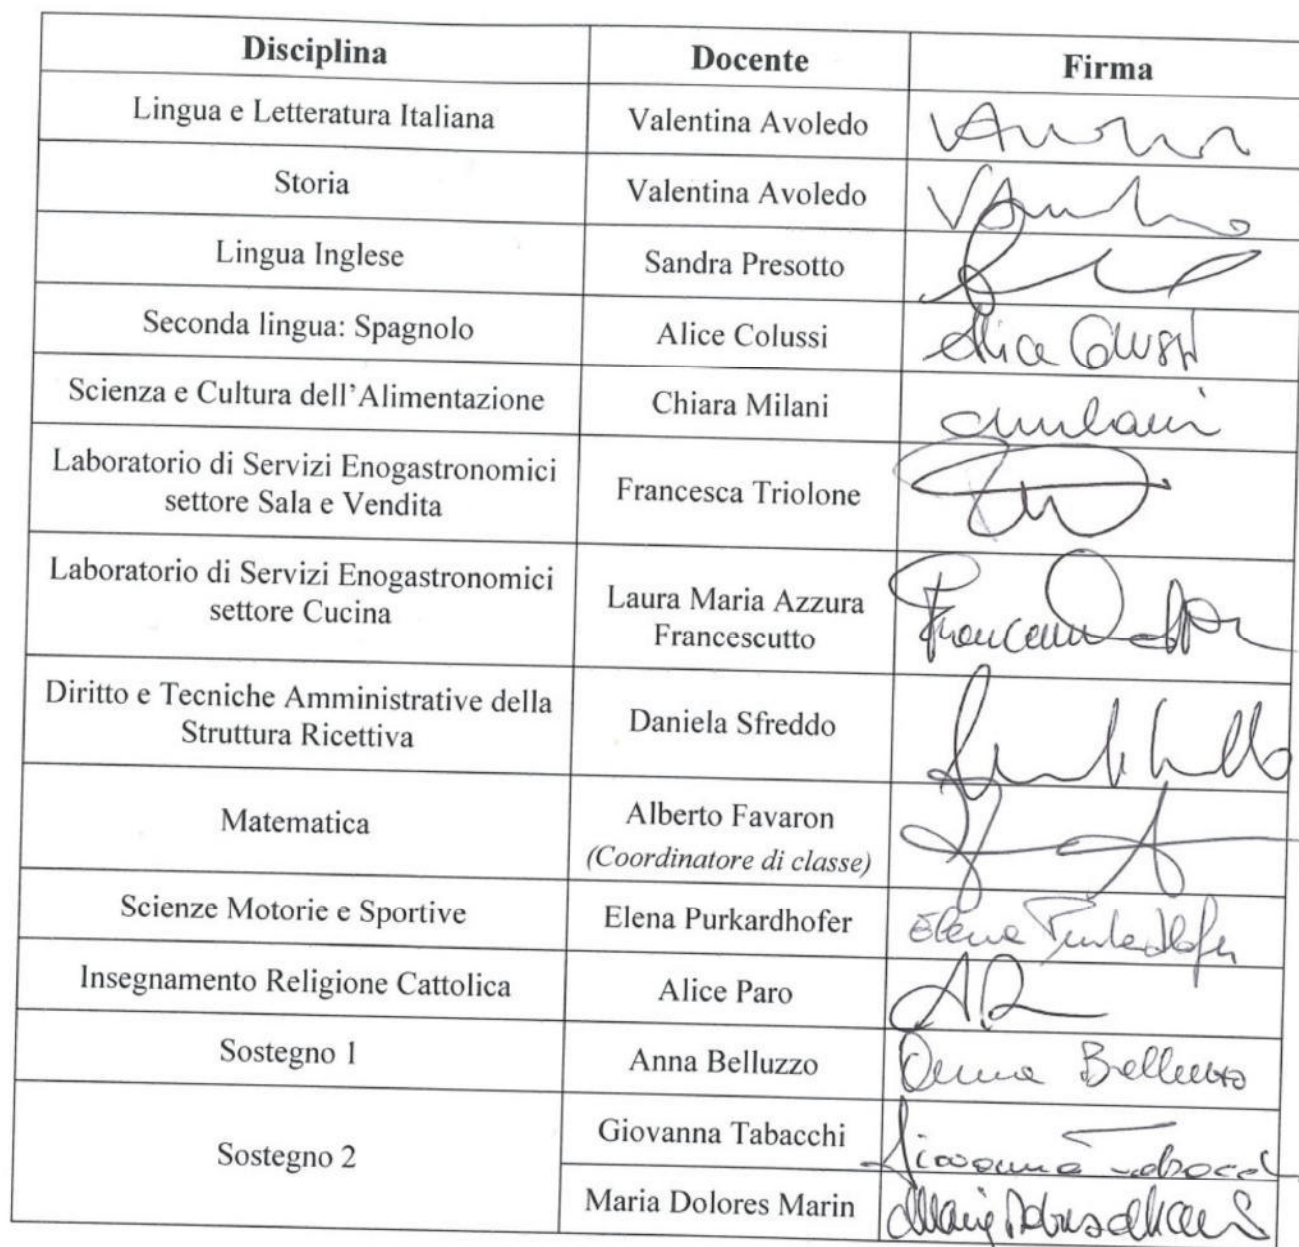 Disciplina Docente Firma
Lingua e Letteratura Italiana Valentina Avoledo
Storia Valentina Avoledo
Lingua Inglese Sandra Presotto
Seconda lingua: Spagnolo Alice Colussi Alice Colussi
Scienza e Cultura dell'Alimentazione Chiara Milani
Laboratorio di Servizi Enogastronomici
settore Sala e Vendita
Francesca Triolone
Laboratorio di Servizi Enogastronomici
settore Cucina
Laura Maria Azzura
Francescutto
Diritto e Tecniche Amministrative della
Struttura Ricettiva
Daniela Sfreddo
Matematica
Alberto Favaron
(Coordinatore di classe)
Scienze Motorie e Sportive Elena Purkardhofer Elena Purkardhofer
Insegnamento Religione Cattolica Alice Paro
Sostegno 1 Anna Belluzzo Anna Belluzzo
Sostegno 2
Giovanna Tabacchi Giovanna Tabacchi
Maria Dolores Marin